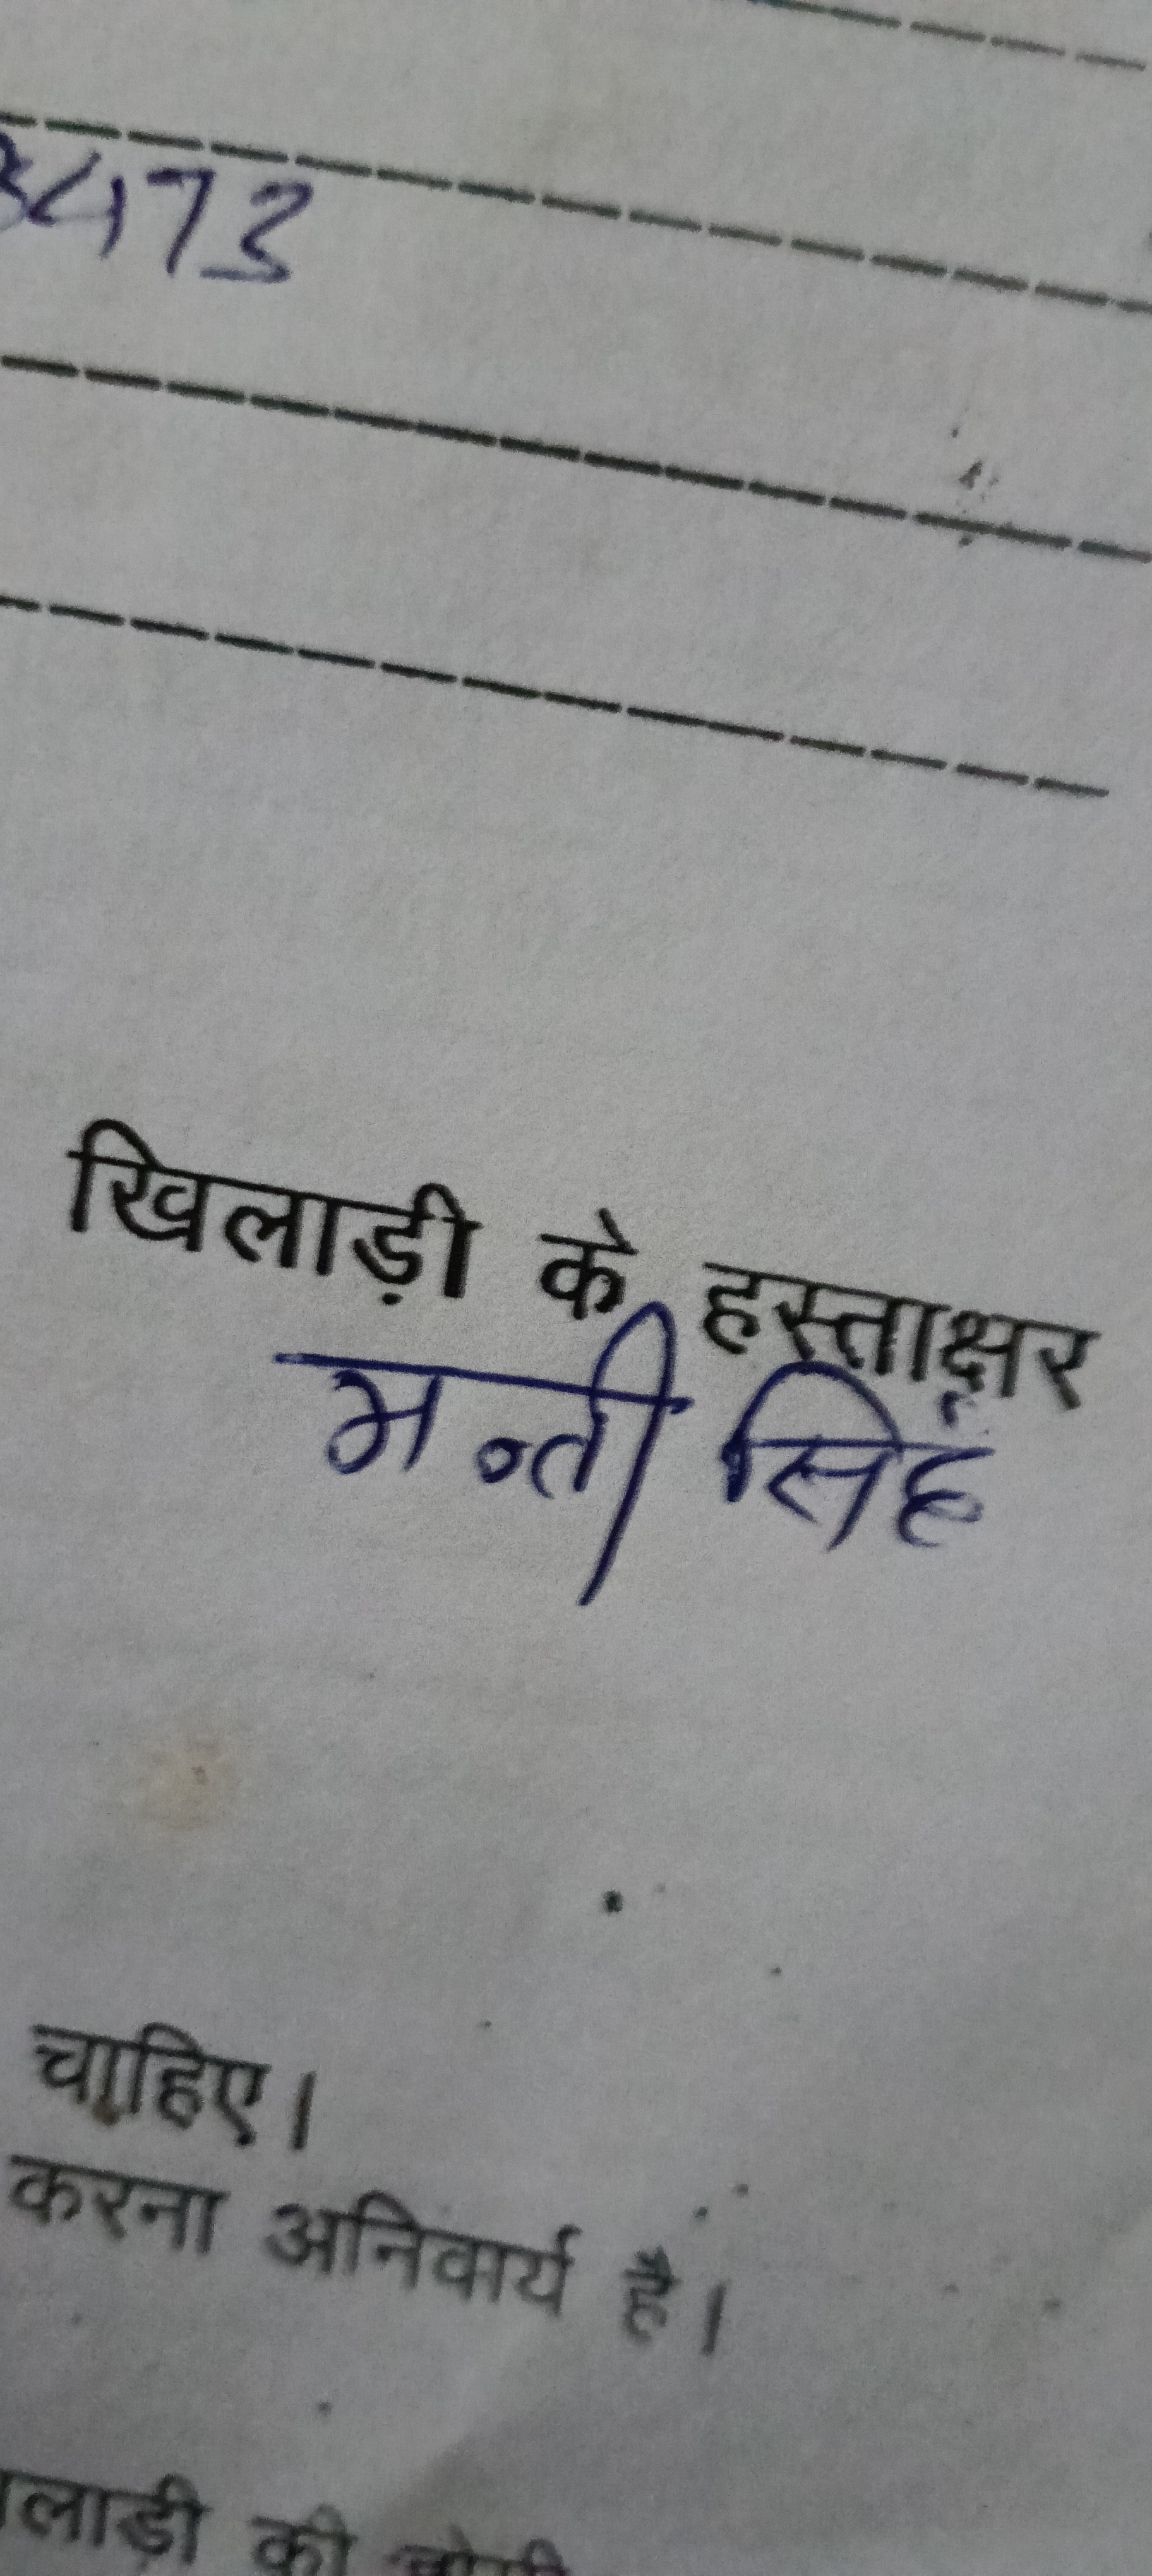 3473
खिलाड़ी के हस्ताक्षर
मन्ती सिंह
चाहिए।
करना अनिवार्य है।
लाड़ी की